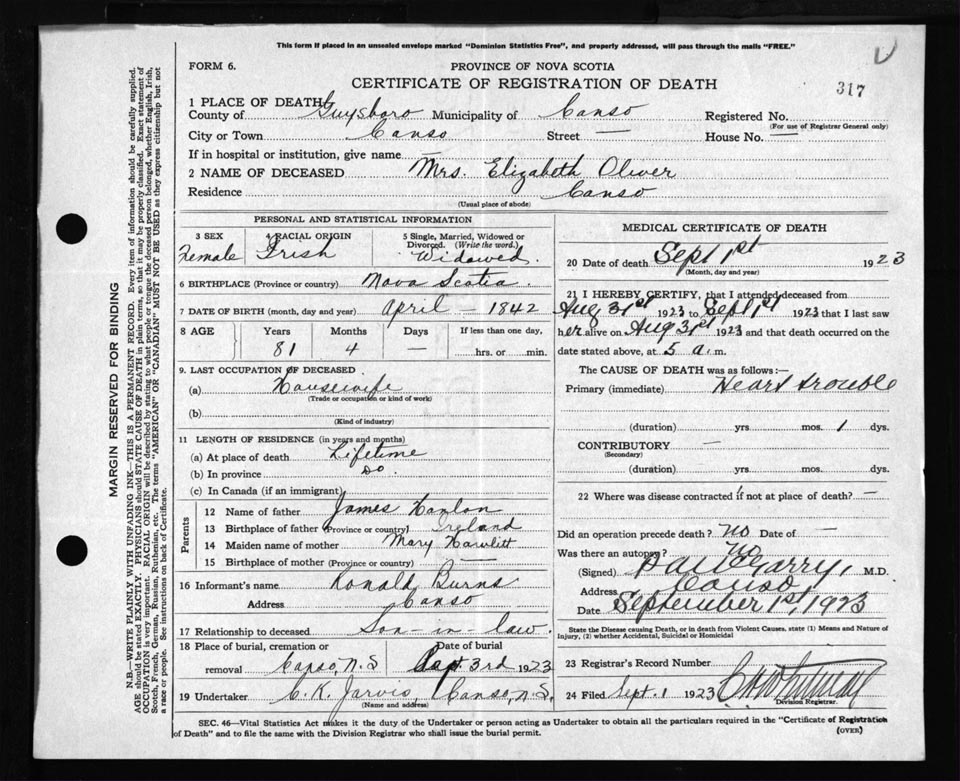 This form if placed in an unsealed envelope marked "Dominion Statistics Free", and properly addressed, will pass through the mails "FREE."
FORM 6.
PROVINCE OF NOVA SCOTIA
CERTIFICATE OF REGISTRATION OF DEATH
317
1 PLACE OF DEATH
County of Guysboro Municipality of Canso Registered No.
(For use of Registrar General only)
City or Town Canso Street — House No. —
If in hospital or institution, give name —
2 NAME OF DECEASED Mrs. Elizabeth Oliver
Residence Canso
(Usual place of abode)
PERSONAL AND STATISTICAL INFORMATION
3 SEX Female
4 RACIAL ORIGIN Irish
5 Single, Married, Widowed or Divorced. (Write the word.) Widowed.
6 BIRTHPLACE (Province or country) Nova Scotia.
7 DATE OF BIRTH (month, day and year) April — 1842
8 AGE Years 81 Months 4 Days — If less than one day, hrs. or min.
9. LAST OCCUPATION OF DECEASED
(a) Housewife
(Trade or occupation or kind of work)
(b)
(Kind of industry)
11 LENGTH OF RESIDENCE (in years and months)
(a) At place of death Lifetime
(b) In province Do.
(c) In Canada (if an immigrant)
Parents
12 Name of father James Hanlon
13 Birthplace of father (Province or country) Ireland
14 Maiden name of mother Mary
15 Birthplace of mother (Province or country) —
16 Informant's name Ronald Burns
Address Canso
17 Relationship to deceased Son-in-law.
18 Place of burial, cremation or removal Canso, N.S Date of burial Sept 3rd 1923
19 Undertaker C.K. Jarvis Canso, N.S.
(Name and address)
MEDICAL CERTIFICATE OF DEATH
20 Date of death Sept 1st 1923
(Month, day and year)
21 I HEREBY CERTIFY, that I attended deceased from
Aug 31st 1923 to Sept 1st 1923 that I last saw
her alive on Aug 31st 1923 and that death occurred on
date stated above, at 5 a. m.
The CAUSE OF DEATH was as follows:—
Primary (immediate) Heart trouble
(duration) yrs. mos. 1 dys.
CONTRIBUTORY —
(Secondary)
(duration) yrs. mos. dys.
22 Where was disease contracted if not at place of death? —
Did an operation precede death? No Date of —
Was there an autopsy? No
(Signed) M.D.
Address Canso
Date September 1st, 1923
State the Disease causing Death, or in death from Violent Causes, state (1) Means and Nature of
Injury, (2) whether Accidental, Suicidal or Homicidal
23 Registrar's Record Number
24 Filed Sept. 1 1923
Division Registrar.
SEC. 46—Vital Statistics Act makes it the duty of the Undertaker or person acting as Undertaker to obtain all the particulars required in the "Certificate of Registration
of Death" and to file the same with the Division Registrar who shall issue the burial permit.
(OVER)
MARGIN RESERVED FOR BINDING
N.B.—WRITE PLAINLY WITH UNFADING INK—THIS IS A PERMANENT RECORD. Every item of information should be carefully supplied.
AGE should be stated EXACTLY. PHYSICIANS should STATE CAUSE OF DEATH in plain terms, so that it may be properly classified. Exact statement of
OCCUPATION is very important. RACIAL ORIGIN will be described by stating to what people or tongue the deceased person belonged, whether English, Irish,
Scotch, French, German, Russian, Ruthenian, etc. The terms "AMERICAN" OR "CANADIAN" MUST NOT BE USED as they express citizenship but not
a race or people. See instructions on back of Certificate.